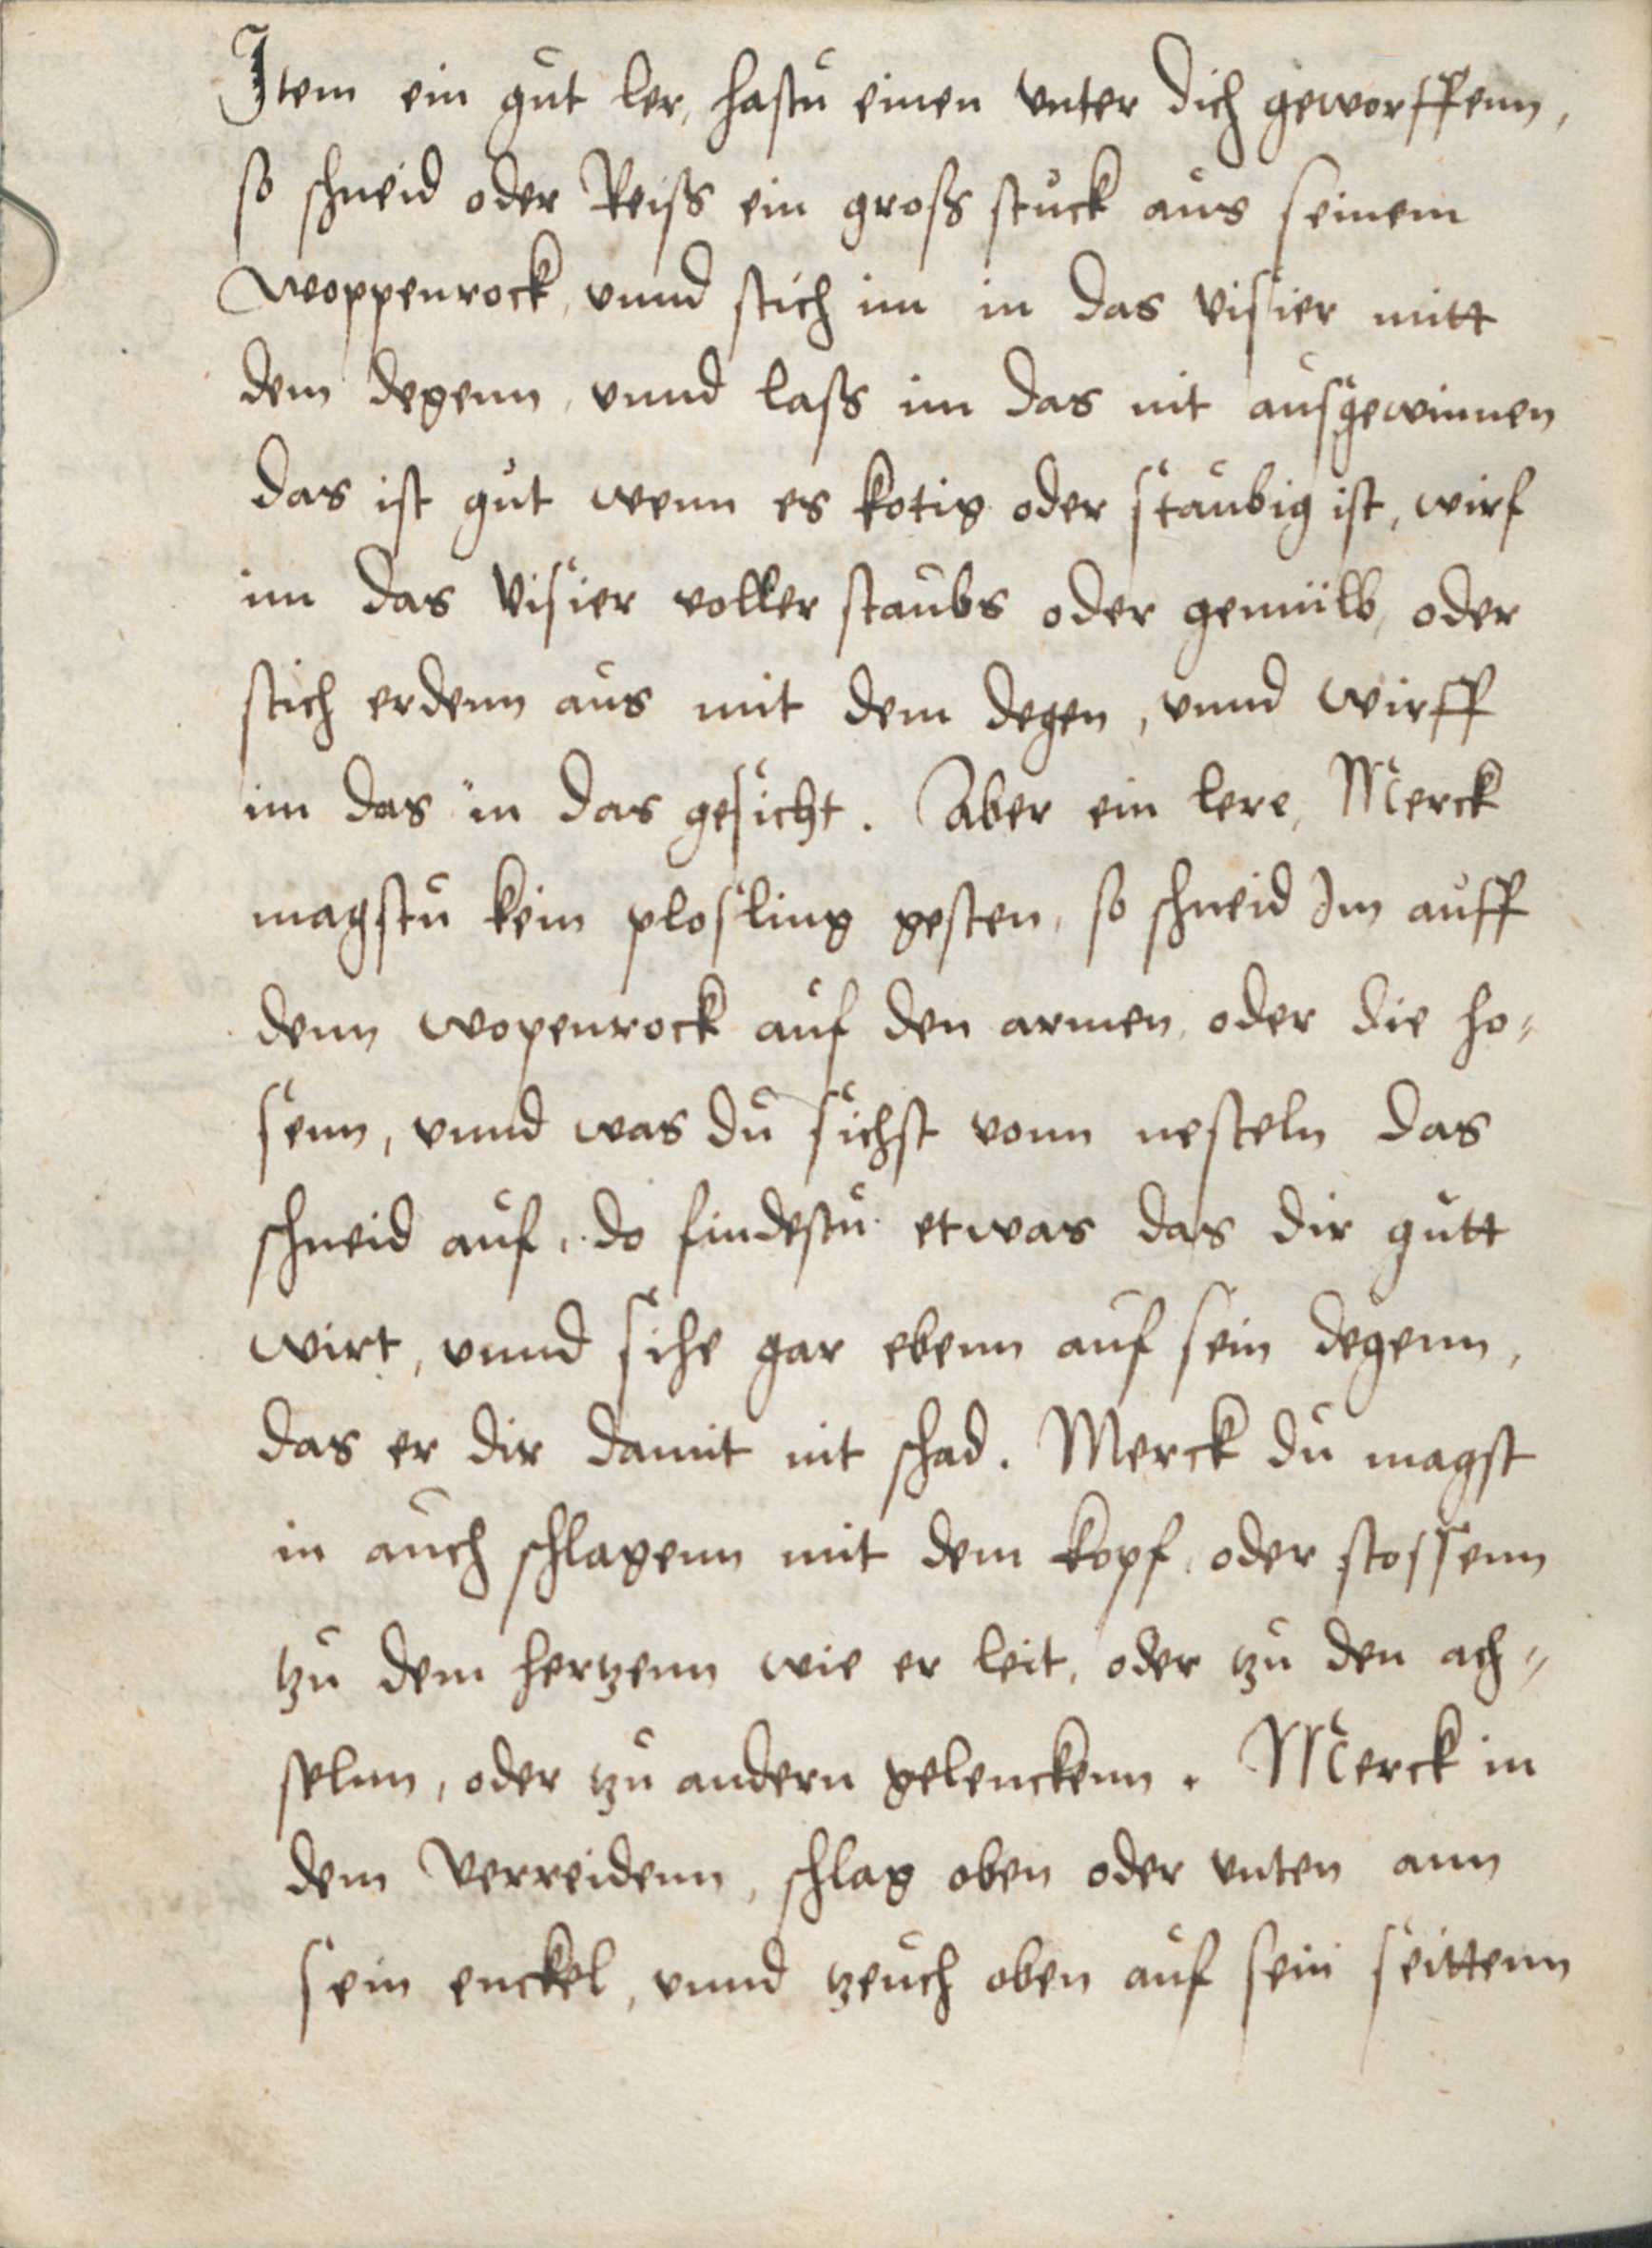 Item ein gut ler, hastu einen vnter dich geworffenn,
so schneid oder Reiss ein gross stuck aus seinem
woppenrock, vnnd stich im in das visier mitt
dem degenn, vnnd lass im das nit ausgewinnen
das ist gut wenn es kotig oder staubig ist, wirf
im das visier voller staubs oder gemülb, oder
stich erdenn aus mit dem degen, vnnd wirff
im das in das gesicht. Aber ein lere, Merck
magstu kein plosling gesten, so schneid Im auff
denn wopenrock auf den armen, oder die ho-
senn, vnnd was du sichst vonn nesteln das
schneid auf, do findestu etwas das dir gutt
wirt, vnnd sihe gar ebenn auf sein degenn,
das er dir damit nit schad. Merck du magst
in auch schlagenn mit dem kopf, oder stossenn
tzu dem hertzenn wie er leit, oder tzu den ach-
selnn, oder tzu andern gelenckenn. Merck in
dem verreidenn, schlag oben oder vnten ann
sein enckel, vnnd tzeuch oben auf sein seittenn